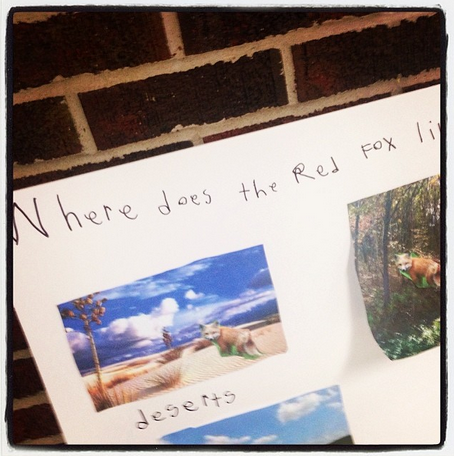 Where does the Red Fox li
deserts